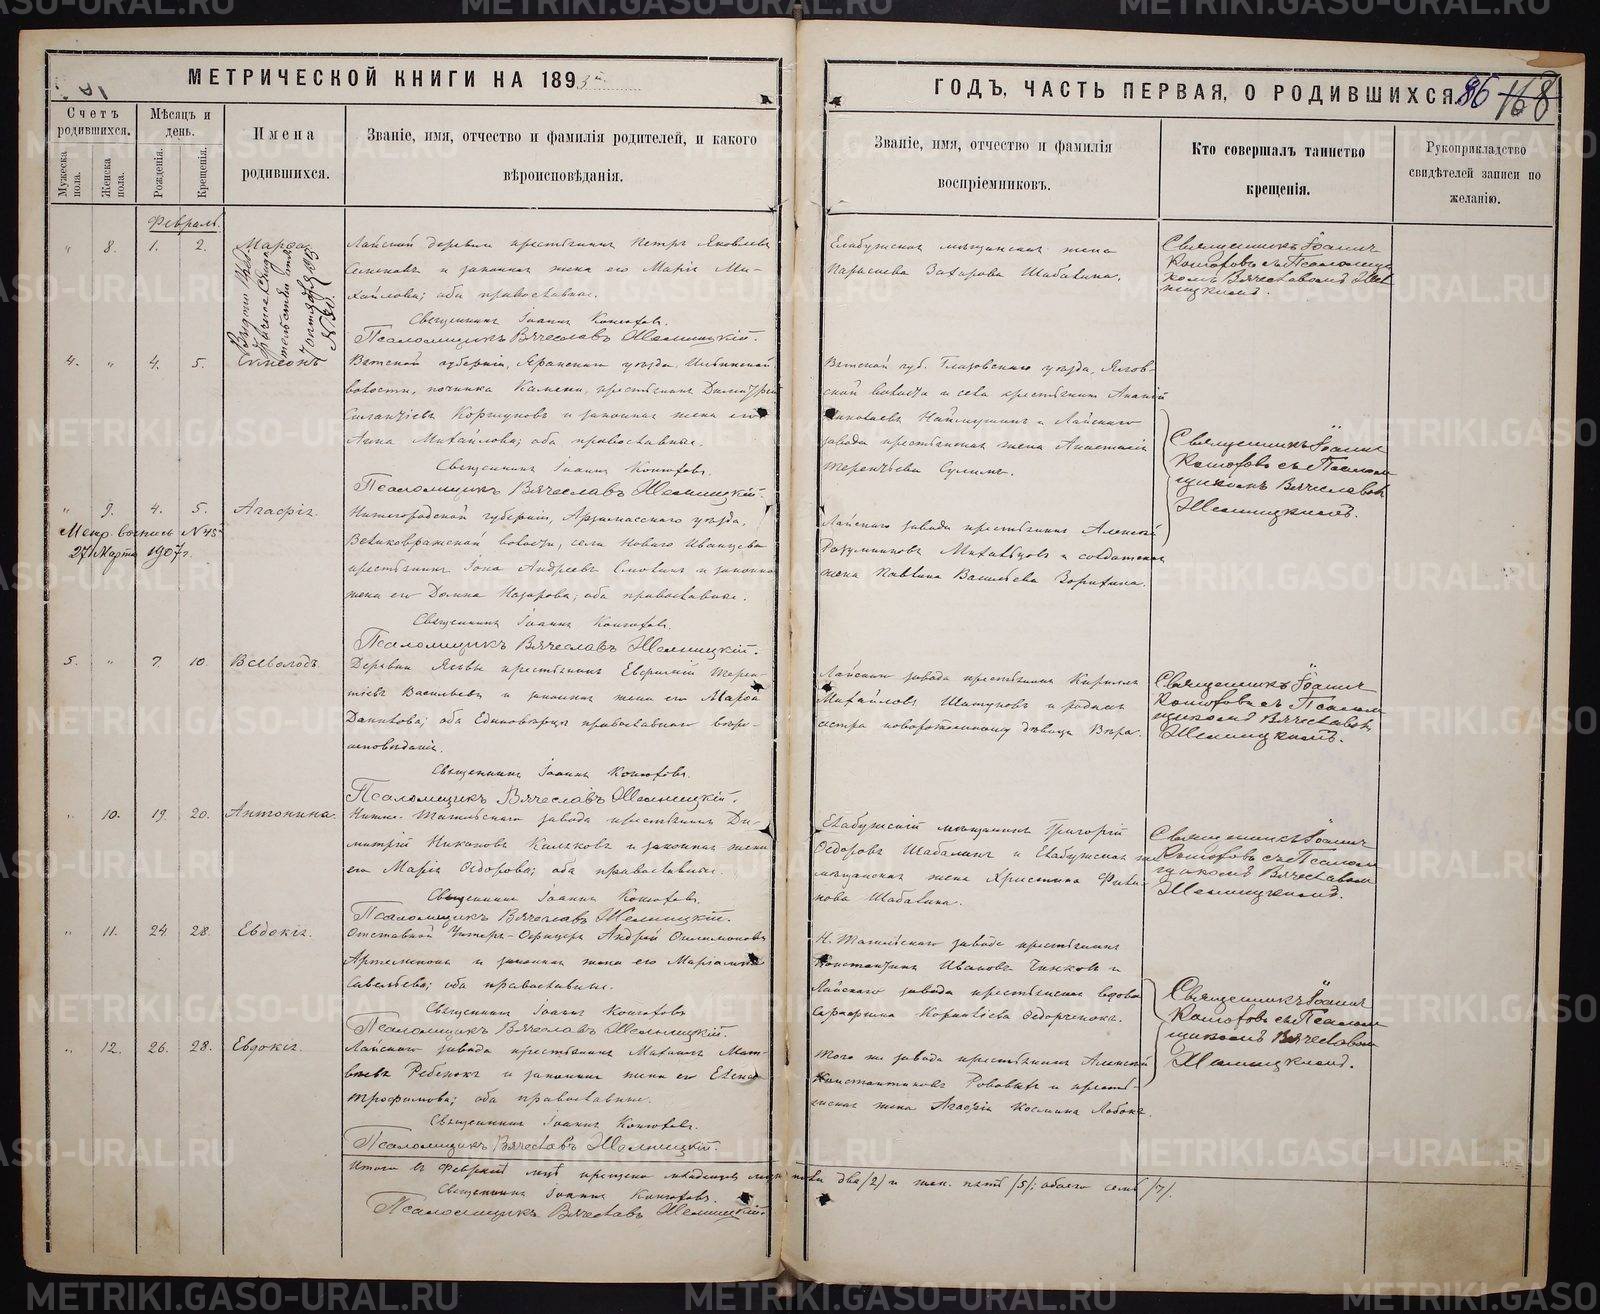 МЕТРИЧЕСКОЙ КНИГИ НА 1893
ГОДЪ, ЧАСТЬ ПЕРВАЯ, О РОДИВШИХСЯ
86 168
Счетъ родившихся.
Мужеска пола.
Женска пола.
Мѣсяцъ и день.
Рожденія.
Крещенія.
Имена
родившихся.
Званіе, имя, отчество и фамилія родителей, и какого
вѣроисповѣданія.
Званіе, имя, отчество и фамилія
воспріемниковъ.
Кто совершалъ таинство
крещенія.
Рукоприкладство
свидѣтелей записи по
желанію.
Февраль.
" 8. 1. 2. Марѳа
Лайской деревни крестьянинъ Петръ Яковлевъ
и законная жена его Марія Ми-
хайлова; оба православные.
Священникъ Іоаннъ Конюховъ.
Псаломщикъ Вячеславъ Желницкій.
Елабужская мѣщанская жена
Параскева Захарова Шабалина.
Священникъ Іоаннъ
Конюховъ съ Псаломщи-
комъ Вячеславомъ Жел-
ницкимъ.
4. " 4. 5. Симеонъ
Вятской губерніи, Яранскаго уѣзда,
волости, починка крестьянинъ Димитрій
Коршуновъ и законная жена его
Анна Михайлова; оба православные.
Священникъ Іоаннъ Конюховъ.
Псаломщикъ Вячеславъ Желницкій.
Вятской губ. Глазовскаго уѣзда,
ской волости и села крестьянинъ Ананій
Николаевъ и Лайскаго
завода крестьянская жена Анастасія
Терентьева
Священникъ Іоаннъ
Конюховъ съ Псалом-
щикомъ Вячеславомъ
Желницкимъ.
" 9. 4. 5. Агафія.
Метр. выпись №45
27 Марта 1907 г.
Нижегородской губерніи, Арзамасскаго уѣзда,
волости, села Новаго Иванцева
крестьянинъ Іона Андреевъ и законная
жена его Домна Назарова; оба православные.
Священникъ Іоаннъ Конюховъ.
Псаломщикъ Вячеславъ Желницкій.
Лайскаго завода крестьянинъ Алексѣй
и солдатская
жена Павлина Васильева
5. " 7. 10. Всеволодъ.
Деревни крестьянинъ Евфимій Терен-
тіевъ Васильевъ и законная жена его Марѳа
Данилова; оба Единовѣрцы православнаго вѣро-
исповѣданія.
Священникъ Іоаннъ Конюховъ.
Псаломщикъ Вячеславъ Желницкій.
Лайскаго завода крестьянинъ Кириллъ
Михайловъ и родная
сестра новорожденному дѣвица Вѣра.
Священникъ Іоаннъ
Конюховъ съ Псалом-
щикомъ Вячеславомъ
Желницкимъ.
" 10. 19. 20. Антонина.
Нижне-Тагильскаго завода крестьянинъ Ди-
митрій Никоновъ и законная жена
его Марія Ѳедорова; оба православные.
Священникъ Іоаннъ Конюховъ.
Псаломщикъ Вячеславъ Желницкій.
Елабужскій мѣщанинъ Григорій
Ѳедоровъ Шабалинъ и Елабужская
мѣщанская жена Христина
Шабалина.
Священникъ Іоаннъ
Конюховъ съ Псалом-
щикомъ Вячеславомъ
Желницкимъ.
" 11. 24. 28. Евдокія.
Отставной Унтеръ-Офицеръ Андрей
и законная жена его
Савельева; оба православные.
Священникъ Іоаннъ Конюховъ
Псаломщикъ Вячеславъ Желницкій.
Н. Тагильскаго завода крестьянинъ
Константинъ Ивановъ и
Лайскаго завода крестьянская вдова
Серафима Корнилієва
Священникъ Іоаннъ
Конюховъ съ Псалом-
щикомъ Вячеславомъ
Желницкимъ.
" 12. 26. 28. Евдокія.
Лайскаго завода крестьянинъ Мат-
вѣевъ Ребенокъ и законная жена его Елена
Трофимова; оба православные.
Священникъ Іоаннъ Конюховъ.
Псаломщикъ Вячеславъ Желницкій.
Того же завода крестьянинъ Алексѣй
Константиновъ и кресть-
янская жена Агафія Космина
Итого въ Февралѣ мцѣ крещено младенцевъ муж. пола два /2/ и жен. пять /5/; обоего семь /7/.
Священникъ Іоаннъ Конюховъ.
Псаломщикъ Вячеславъ Желницкій.
METRIKI.GASO-URAL.RU